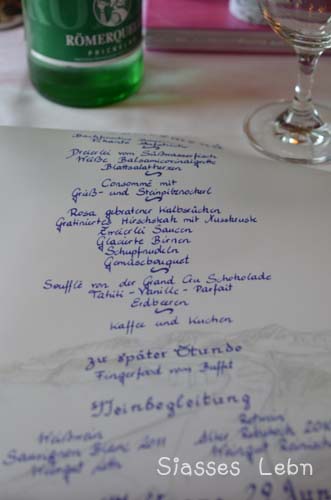 RÖMERQUELLE
PRICKELND
Dreierlei vom Süßwasserfisch
Weiße Balsamicovinaigrette
Blattsalatherzen
Consommé mit
Grieß- und Steinpilznockerl
Rosa gebratener Kalbsrücken
Gratiniertes Hirschsteak mit Nusskruste
Zweierlei Saucen
Glacierte Birnen
Schupfnudeln
Gemüsebouquet
Soufflé von der Grand Cru Schokolade
Tahiti-Vanille-Parfait
Erdbeeren
Kaffee und Kuchen
zu später Stunde
Fingerfood vom Buffet
Weinbegleitung
Weißwein
Rotwein
Sauvignon Blanc 2011
Weingut
Weingut
Siasses Lebn